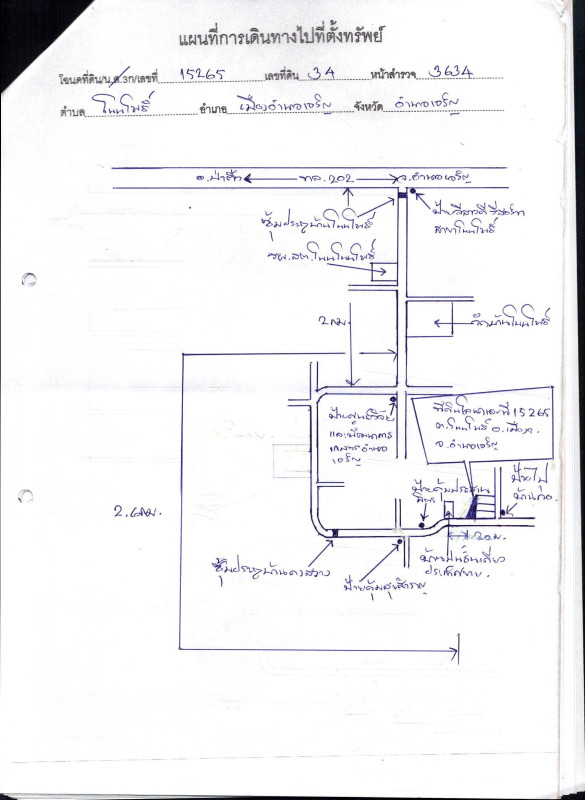 แผนที่การเดินทางไปที่ตั้งทรัพย์
โฉนดที่ดิน/น.ส.3ก/เลขที่ 15265 เลขที่ดิน 34 หน้าสำรวจ 3634
ตำบล โนนโพธิ์ อำเภอ เมืองอำนาจเจริญ จังหวัด อำนาจเจริญ
ทล.202
จ.อำนาจเจริญ
ซุ้มประตูบ้านโนนโพธิ์
สาขาโนนโพธิ์
รพ.สต.โนนโพธิ์
วัดบ้านโนนโพธิ์
2 กม.
ที่ดินโฉนดเลขที่ 15265
ต.โนนโพธิ์ อ.เมืองฯ
จ.อำนาจเจริญ
ป้ายศูนย์วิจัย
และพัฒนาการ
เกษตรอำนาจ
เจริญ
ป้ายไป
ป้ายคุ้มประชา
20 ม.
บ้านปูนชั้นเดียว
ซุ้มประตูบ้านดงสวาง